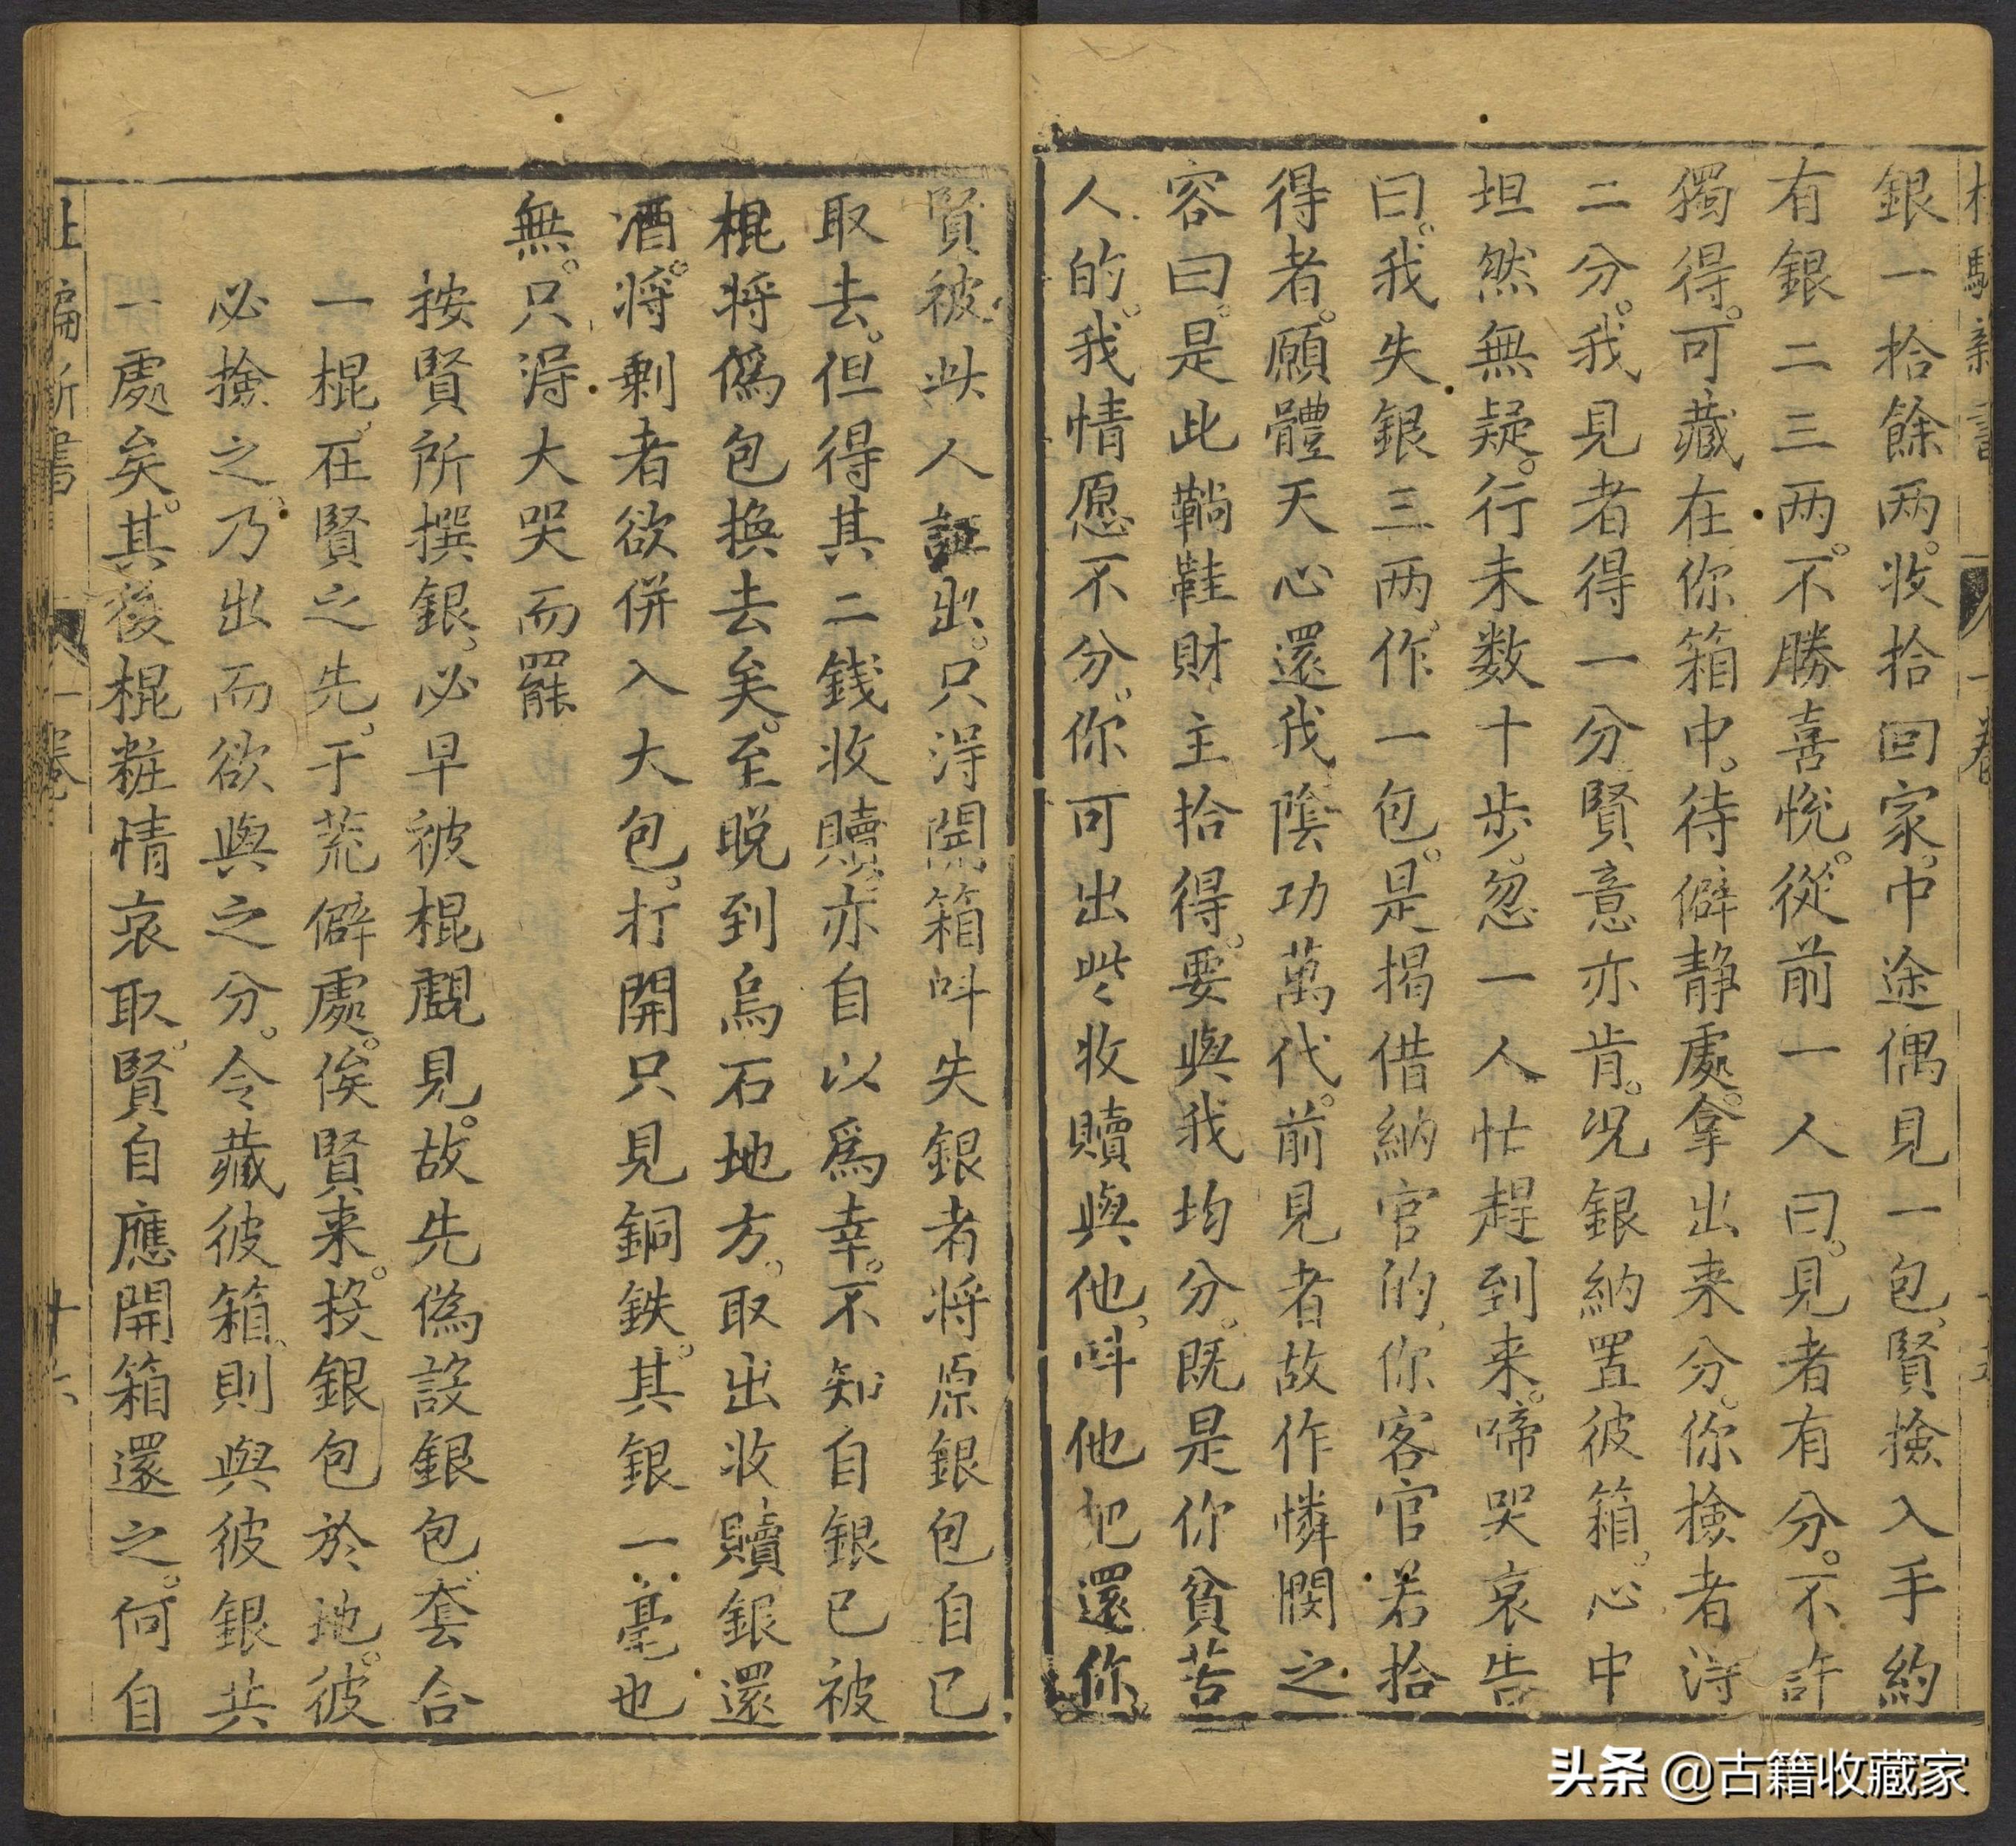 銀一拾餘两。收拾回家。中途偶見一包、賢撿入手約
有銀二三两。不勝喜悅。從前一人曰。見者有分。不許
獨得。可藏在你箱中。待僻静處。拿出来分。你撿者淂
二分。我見者得一分賢意亦肯。况銀納置彼箱。心中
坦然無疑。行未数十步。忽一人忙趕到来。啼哭哀告
曰。我失銀三两、作一包。是揭借納官的、你客官若拾
得者。願體天心還我、陰功萬代。前見者故作憐憫之
容曰。是此鞝鞋財主拾得。要與我均分。既是你貧苦
人的。我情愿不分。你可出些收贖與他、呌他把還你。
賢被此人証出。只淂開箱呌失銀者将原銀包自已
取去。但得其二錢收贖。亦自以爲幸。不知自銀已被
棍将僞包換去矣。至晚到烏石地方。取出收贖銀還
酒。将剩者欲併入大包。打開只見銅鉄。其銀一毫也
無。只淂大哭而罷
按賢所撰銀、必早被棍覷見。故先僞設銀包、套合
一棍、在賢之先、于荒僻處。俟賢来。投銀包於地。彼
必撿之、乃出而欲與之分。令藏彼箱、則與彼銀共
一處矣。其後棍粧情哀取、賢自應開箱還之。何自
卷
十六
头条 @古籍收藏家